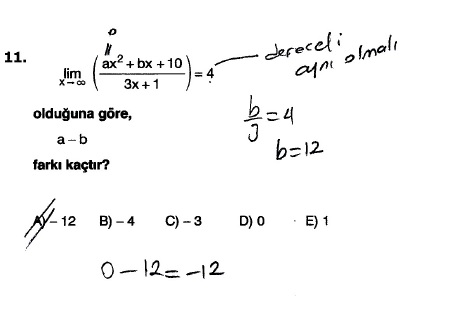 0
||
11. lim x→∞ (ax² + bx + 10 / 3x + 1) = 4
dereceli
aynı olmalı
olduğuna göre,
a – b
farkı kaçtır?
b/3 = 4
b = 12
A) – 12 B) – 4 C) – 3 D) 0 E) 1
0 – 12 = –12